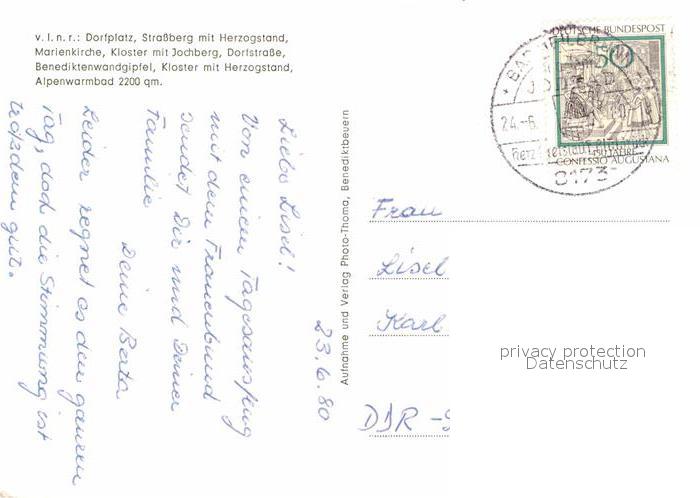 v. l. n. r.: Dorfplatz, Straßberg mit Herzogstand,
Marienkirche, Kloster mit Jochberg, Dorfstraße,
Benediktenwandgipfel, Kloster mit Herzogstand,
Alpenwarmbad 2200 qm.
23.6.80
Liebe Lisel!
Von einem Tagesausflug
mit dem Frauenbund
sendet Dir und Deiner
Familie
Deine Berta
Leider regnet es den ganzen
Tag, doch die Stimmung ist
trotzdem gut.
Aufnahme und Verlag Photo-Thoma, Benediktbeuern
DEUTSCHE BUNDESPOST
50
450 JAHRE
CONFESSIO AUGUSTANA
BAD HEILBRUNN
JODBAD
24.-6.
8173
Frau
Lisel
Karl
DDR -
privacy protection
Datenschutz